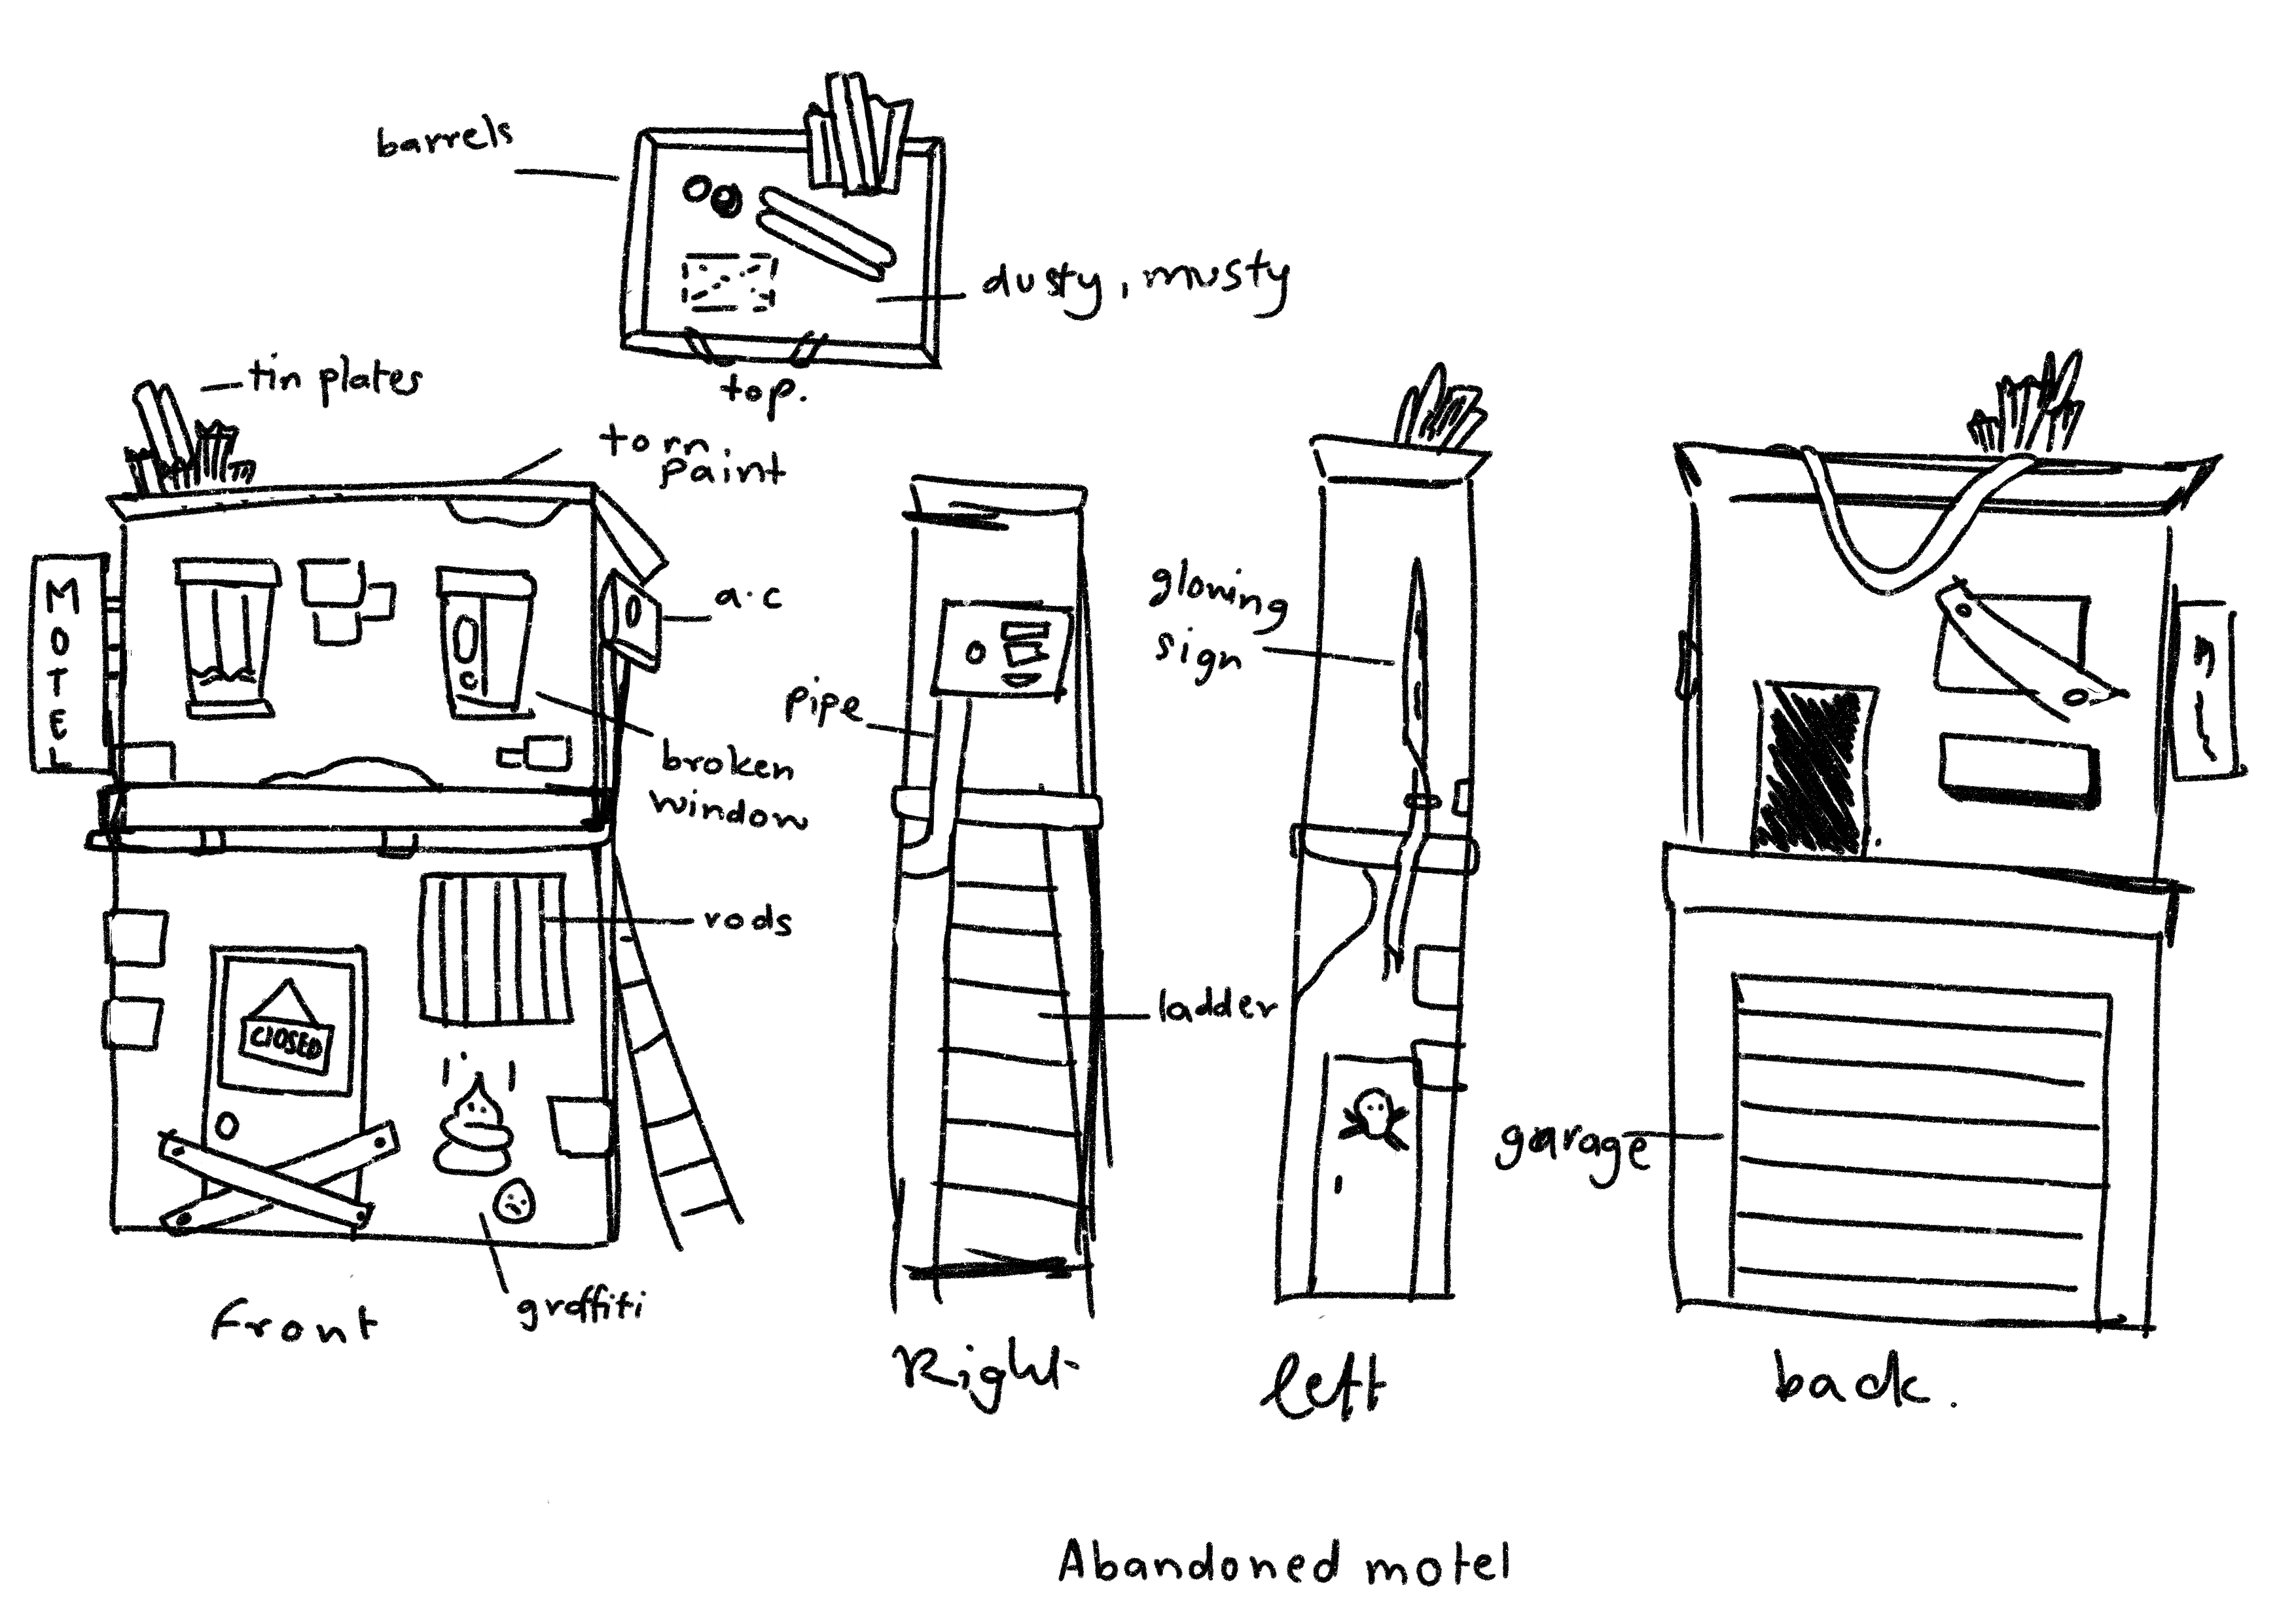 barrels
dusty, musty
top.
tin plates
torn
paint
MOTEL
a.c
broken
window
rods
CLOSED
graffiti
Front
pipe
ladder
Right
glowing
sign
left
garage
back.
Abandoned motel